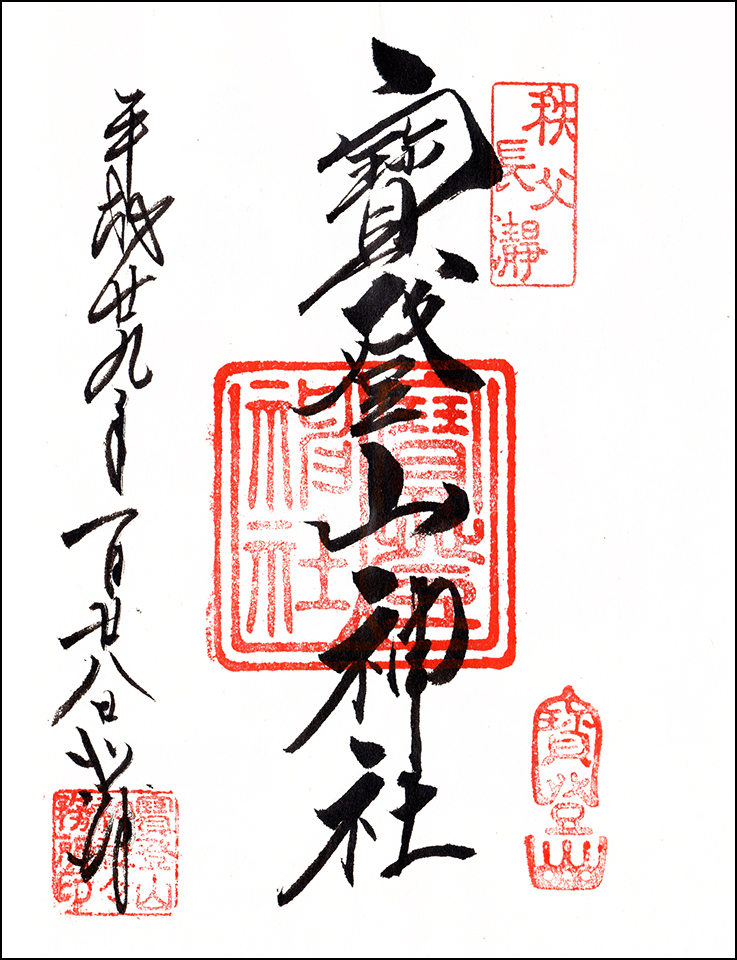 秩父
長瀞
寳登山神社
寶登山
神社
寶登山
平成廿九年一月廿八日
寶登山
務所印